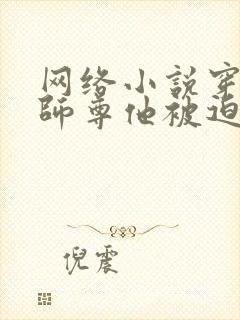 网络小说穿
师尊他被迫
倪震